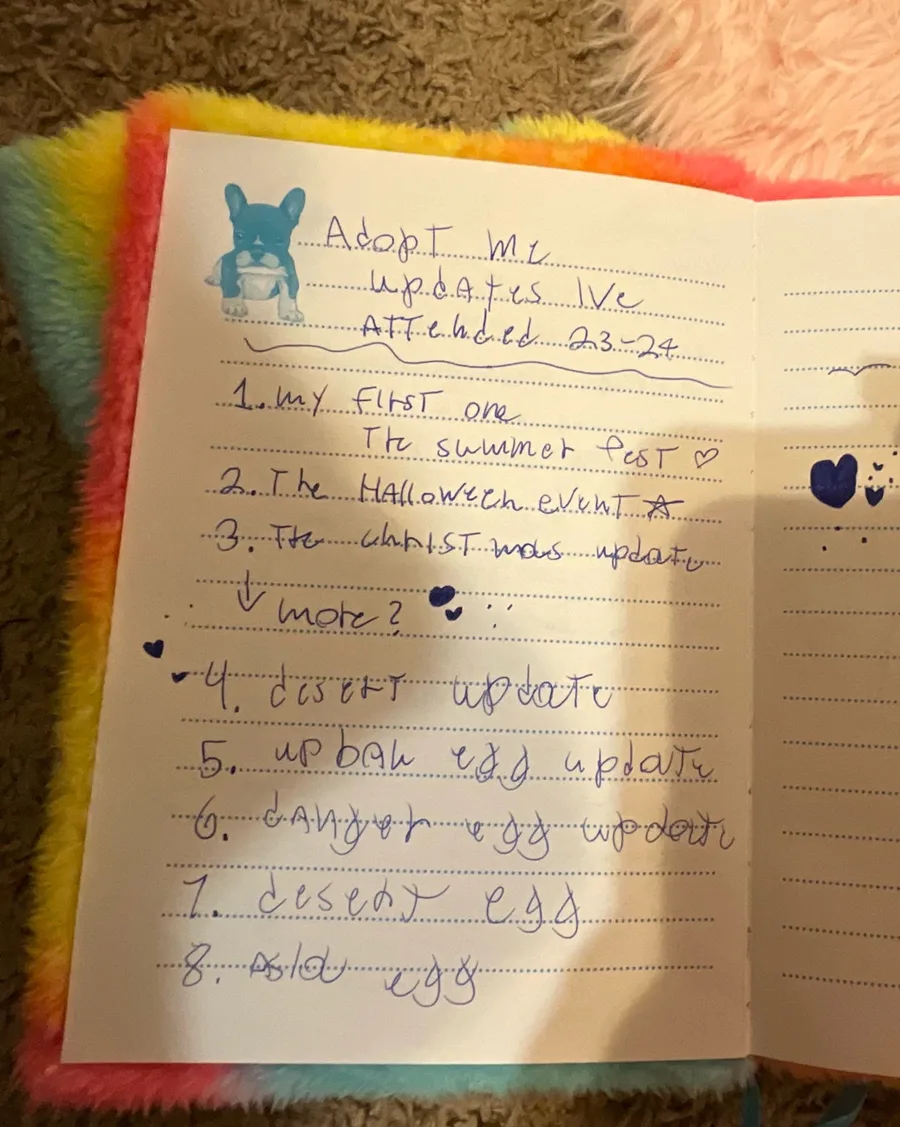 Adopt me
updates Ive
Attended 23-24
1. my first one
The summer fest ♡
2. The Halloween event ☆
3. The christmas update
↓ more?
4. desert update
5. upban egg update
6. danger egg update
7. desert egg
8. egg